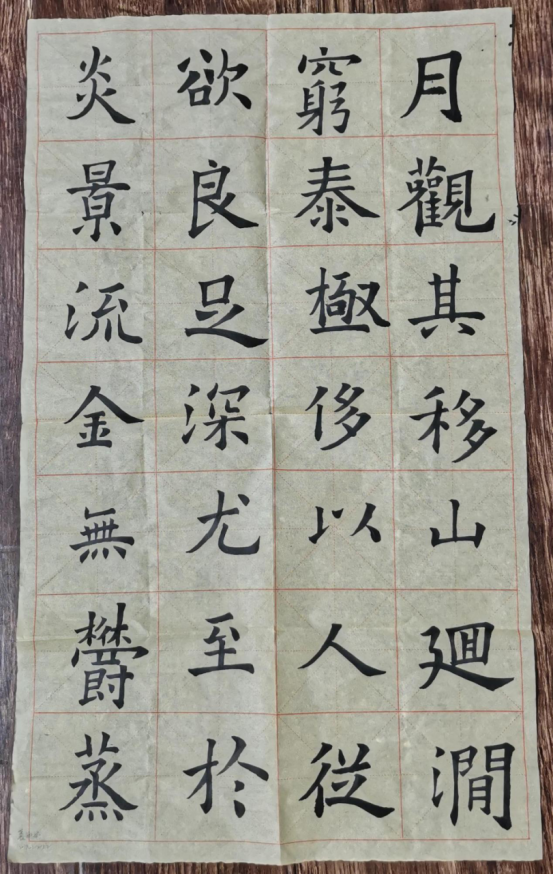 月觀其移山廻澗
窮泰極侈以人從
欲良足深尤至於
炎景流金無欝蒸